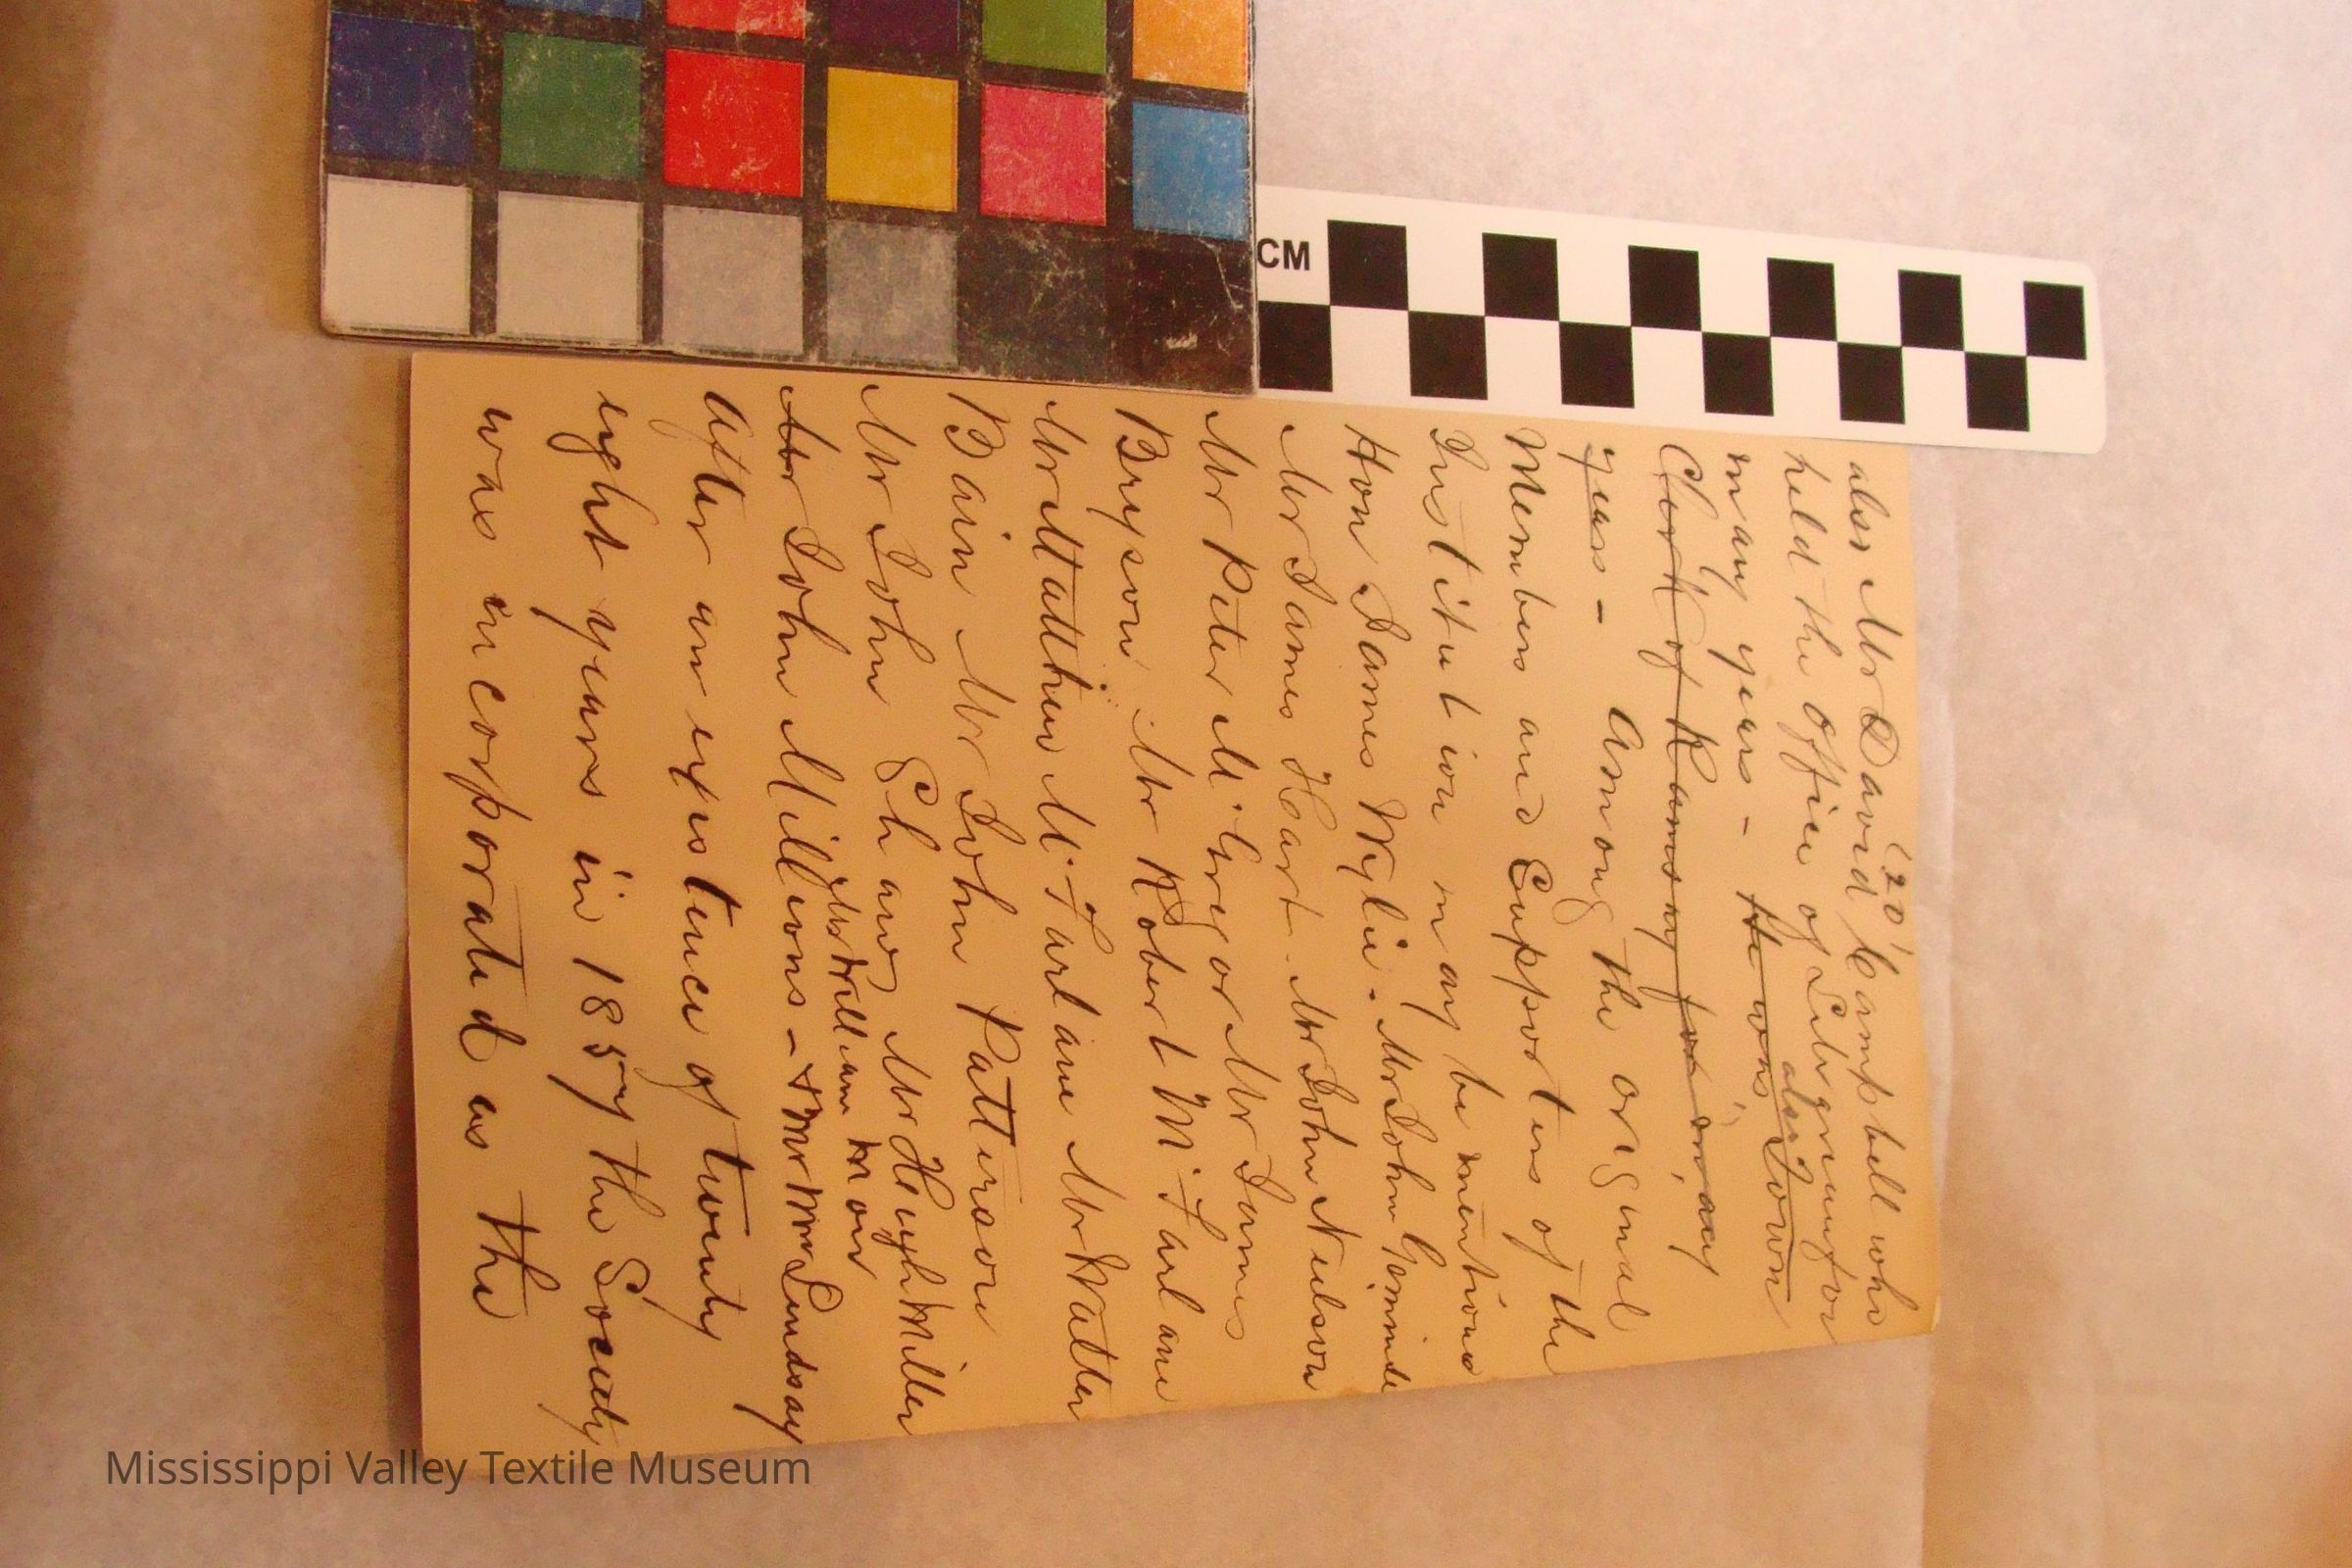 (20)
also Mr David Campbell who
held the office of Librarian for
many years - He was also Town
Clerk of Ramsay for many
years - Among the original
Members and Supporters of the
Institution may be mentioned
Hon James Wylie. Mr John Gemmill
Mr James Hart Mr John Neilson
Mr Peter McGregor Mr James
Bryson Mr Robert McFarlane
Mr Matthew McFarlane Mr Walter
Bain Mr John Patterson
Mr John Shaw Mr Hugh Miller
Mr William Moir
Mr John Millions - & Mr Wm Lindsay
After an existence of twenty
eight years in 1857 the Society
was incorporated as the
CM
Mississippi Valley Textile Museum